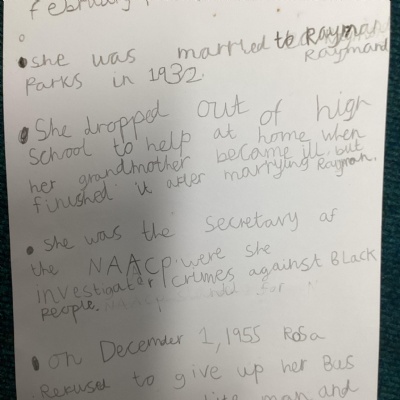 february
• she was married to Rayman
Raymand
Parks in 1932.
• She dropped out of high
School to help at home when
her grandmother became ill but
finished it after marrying Rayman.
• she was the Secretary of
the NAACP. were she
investigater crimes against Black
People.
• on December 1, 1955 Rosa
Refused to give up her Bus
man and